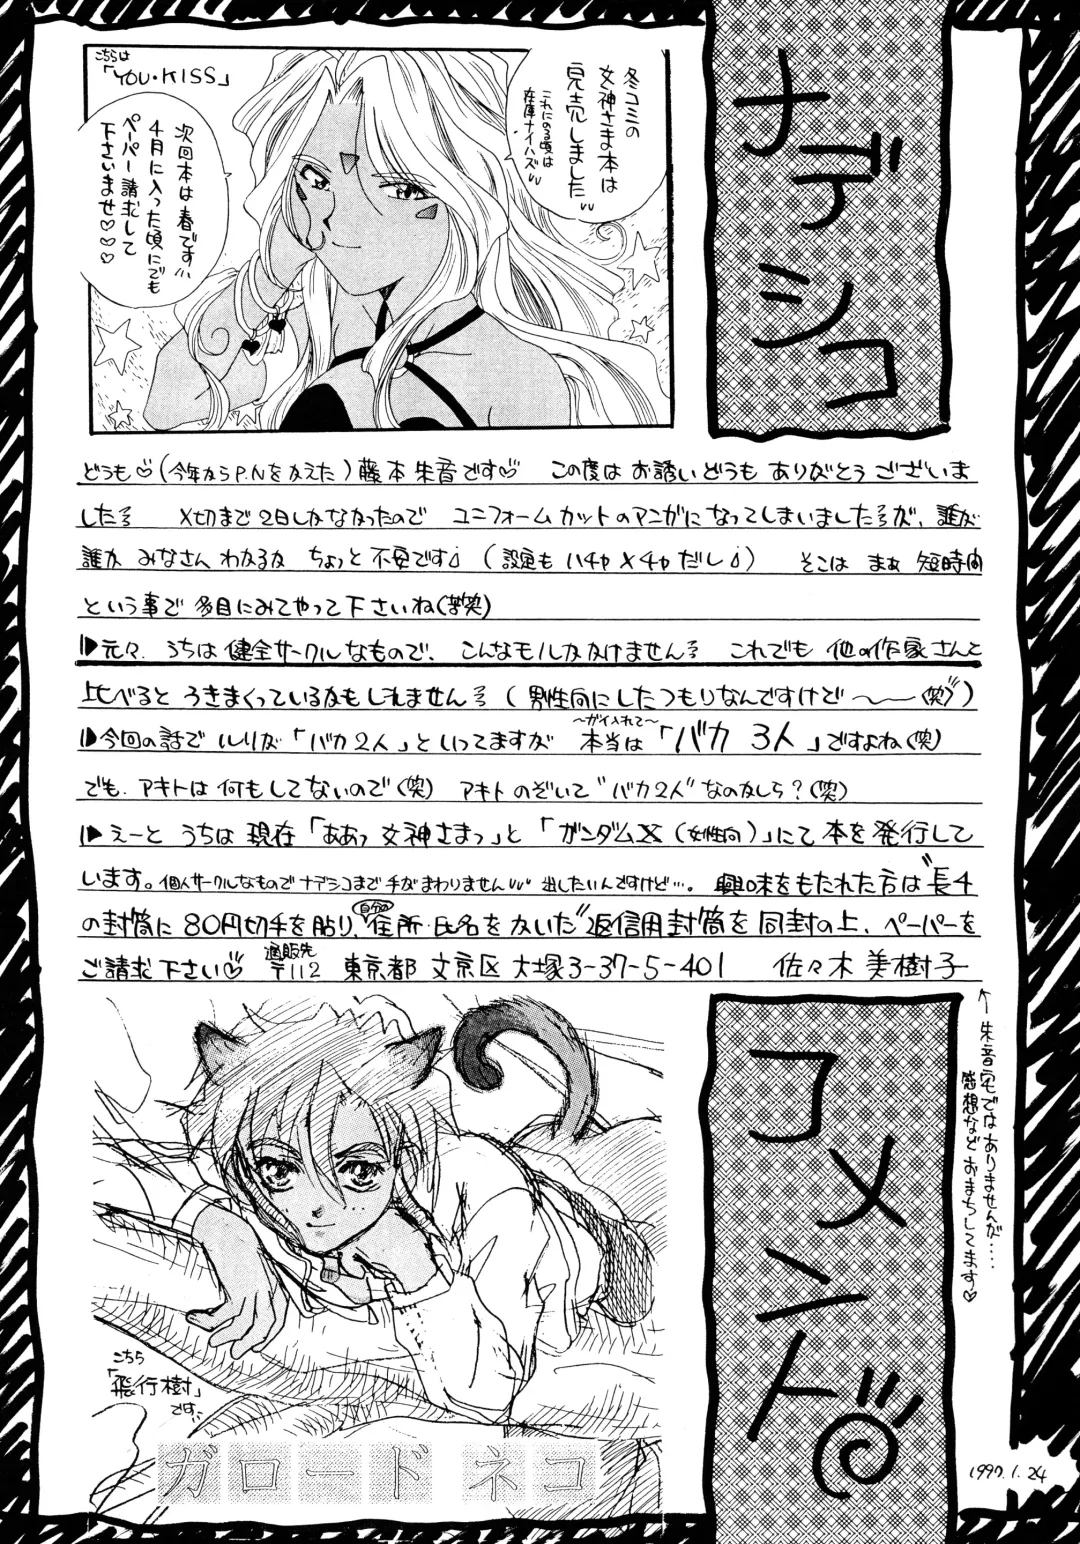 ナデシコ
冬コミの
女神さま本は
完売しました
これにのる頃は
在庫ナイハズ
こちらは
「YOU・KISS」
次回本は春です
4月に入った頃にでも
ペーパー請求して
下さいませ♡♡♡
どうも♡(今年からP.Nをかえた)藤本朱音です♡ この度はお誘いどうもありがとうございま
した〜 〆切まで2日しかなかったので ユニフォームカットのマンガになってしまいました〜が、誰が
誰か みなさんわかるか ちょっと不安です (設定もハチャメチャだし) そこはまぁ 短時間
という事で 多目にみてやって下さいね(苦笑)
▶元々、うちは健全サークルなもので、こんなモノしかかけません〜 これでも 他の作家さんと
比べると うきまくっているかもしれません〜 (男性向にしたつもりなんですけど〜〜(笑))
▶今回の話で ルリが「バカ2人」といってますが 本当は「バカ 3人」ですよね(笑)
〜ガイ入れて〜
でも、アキトは何もしてないので(笑) アキトのぞいて“バカ2人”なのかしら?(笑)
▶えーと うちは現在「ああっ女神さまっ」と「ガンダムX(女性向)」にて本を発行して
います。個人サークルなものでナデシコまで手がまわりません 出したいんですけど…。 興味をもたれた方は“長4
の封筒に80円切手を貼り、自分の住所・氏名をかいた”返信用封筒を同封の上、ペーパーを
ご請求下さい♡ 通販先 〒112 東京都文京区大塚3-37-5-401 佐々木美樹子
↑朱音宅ではありませんが‥‥
感想などおまちしてます♡
コメント
こちら
「飛行樹」
です
ガロード ネコ
1997.1.24